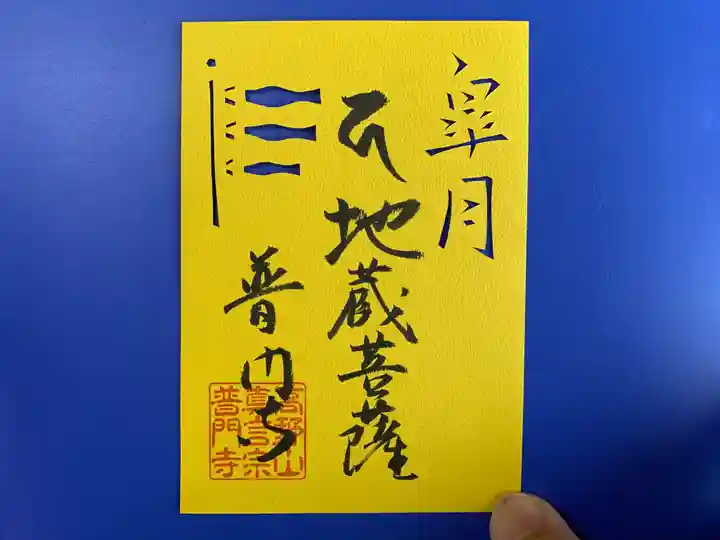 皐月
地蔵菩薩
普門寺
高野山
真言宗
普門寺